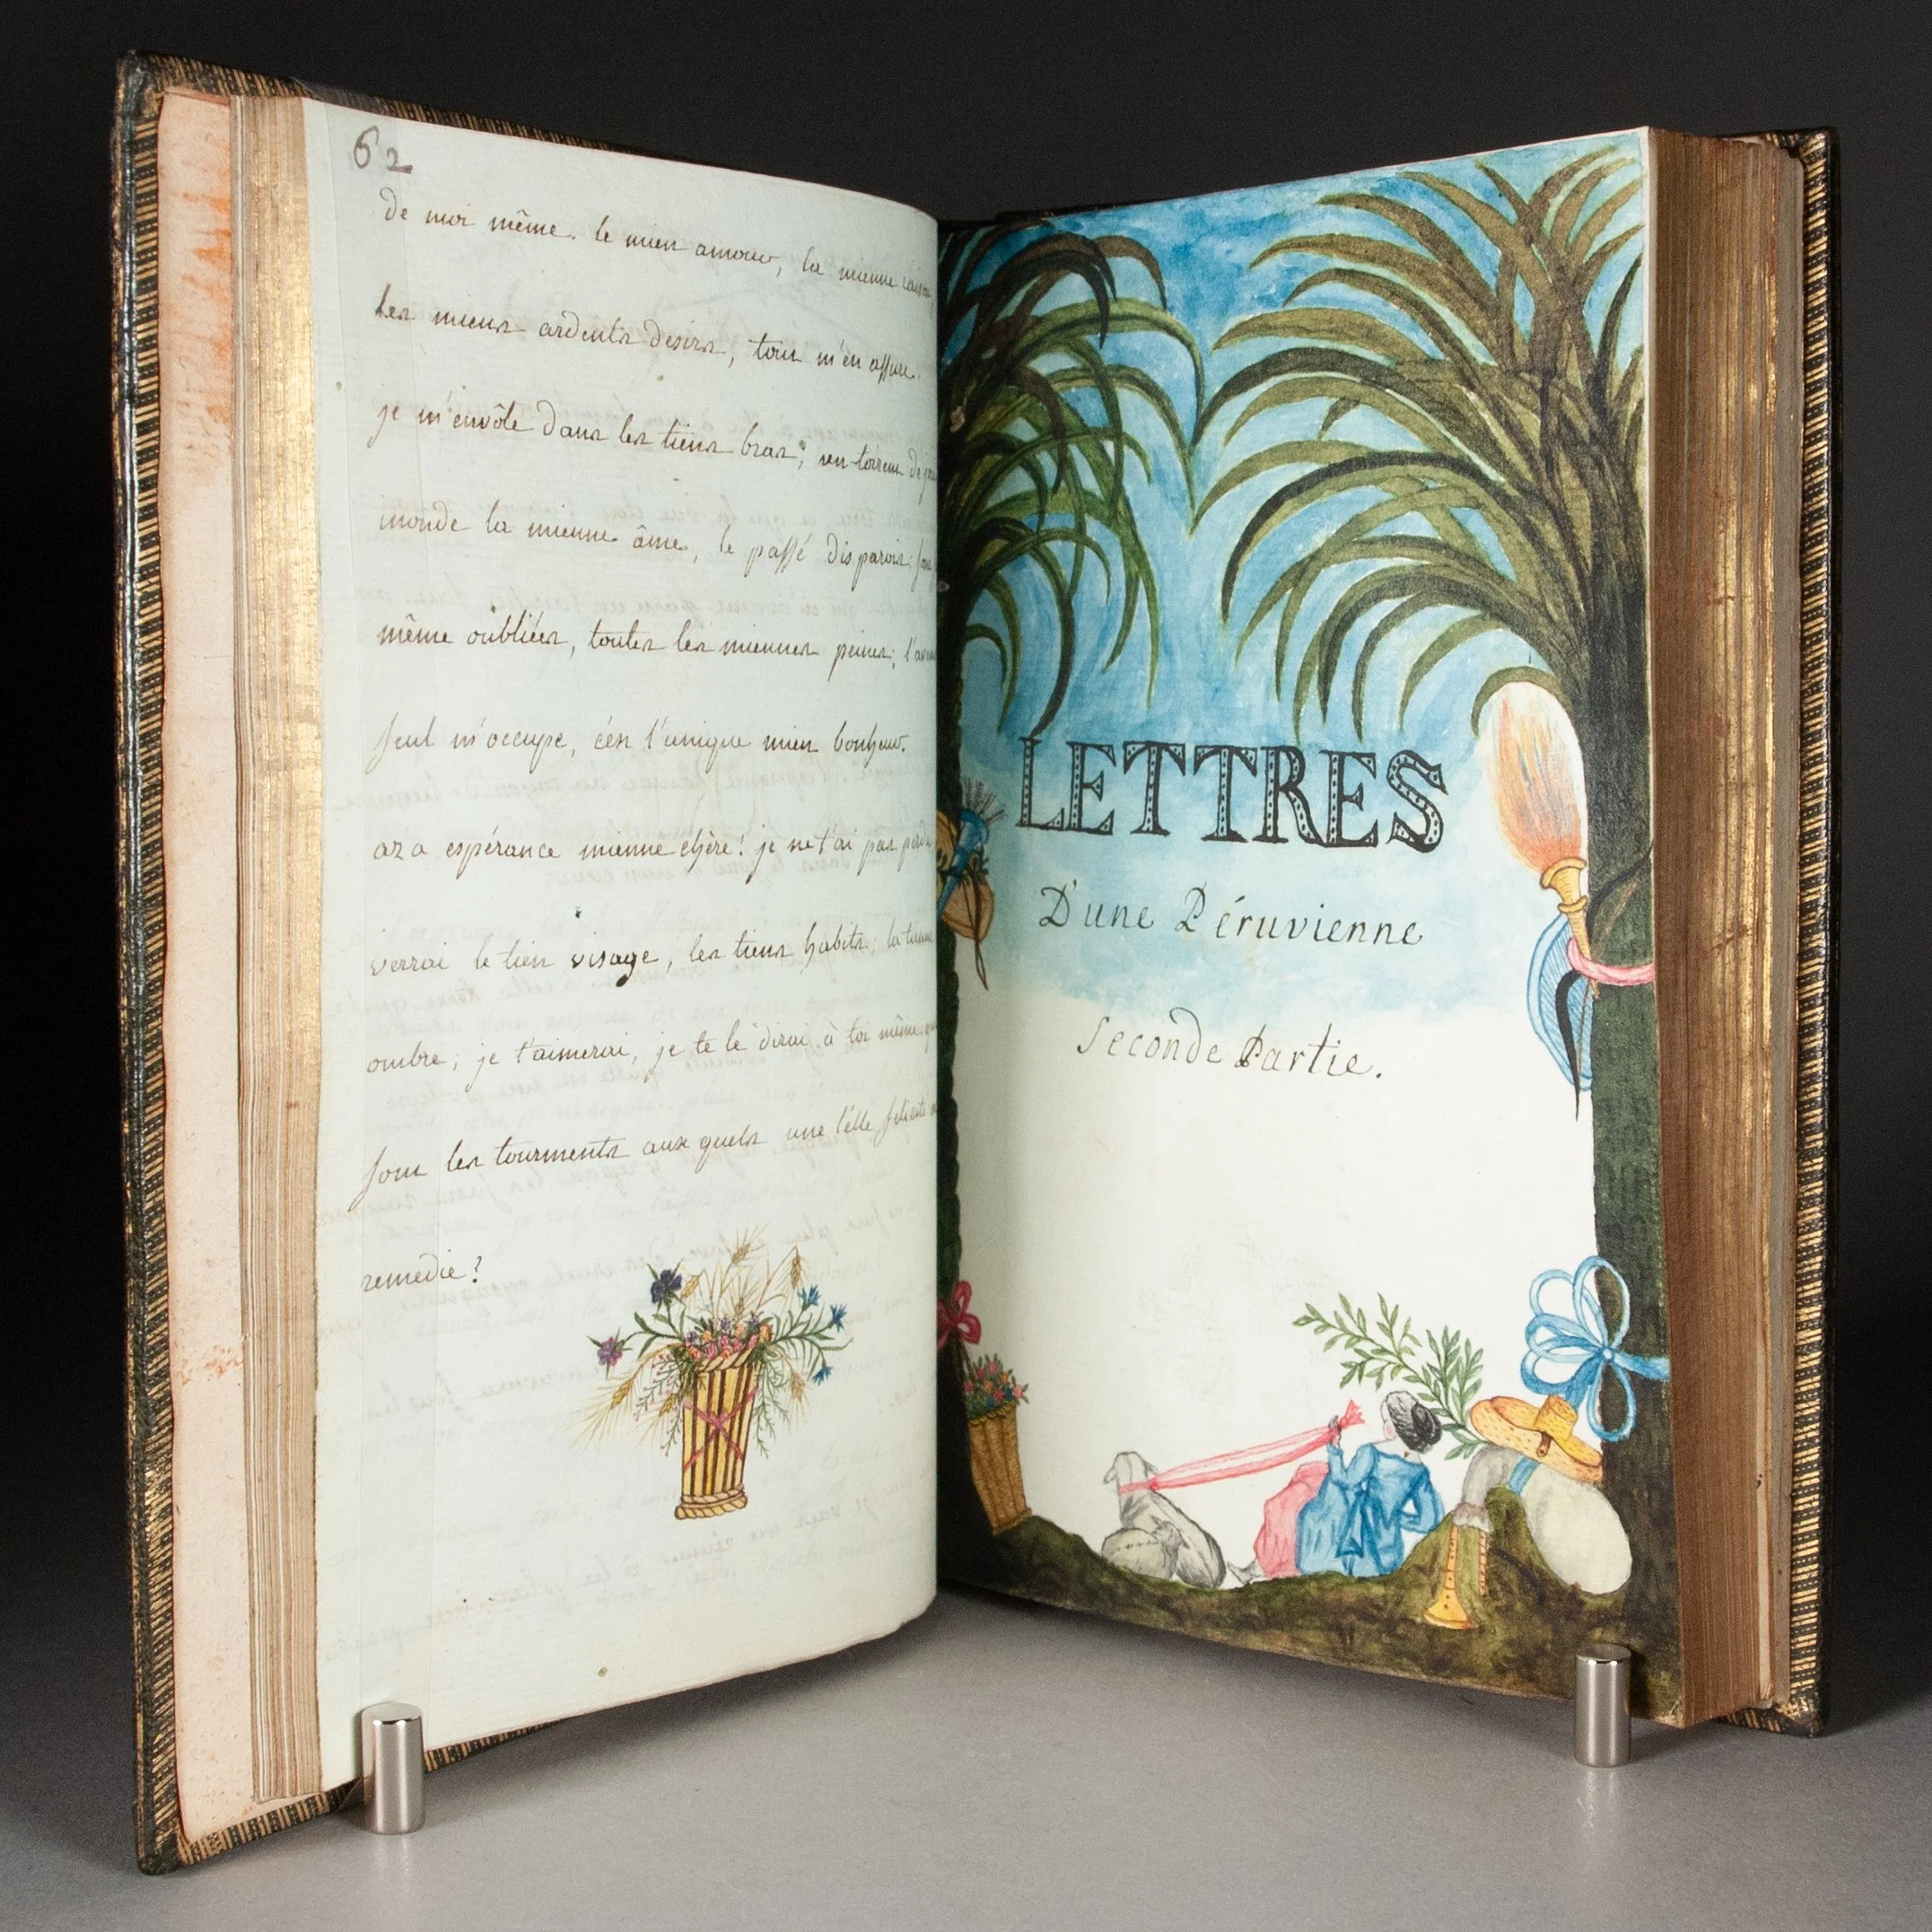 62
de moi même. le mien amour, la mienne raison
les miens ardents desirs, tout m'en assure.
je m'envôle dans les tiens bras; un torrent de
inonde la mienne âme, le passé disparoit;
même oubliées, toutes les miennes peines;
seul m'occupe, c'est l'unique mien bonheur.
aza espérance mienne chère! je ne t'ai pas perdu
verrai le tien visage, les tiens habits; la tienne
ombre; je t'aimerai, je te le dirai à toi même.
sont les tourments aux quels une telle félicité
remédie?
LETTRES
D'une Péruvienne
Seconde Partie.